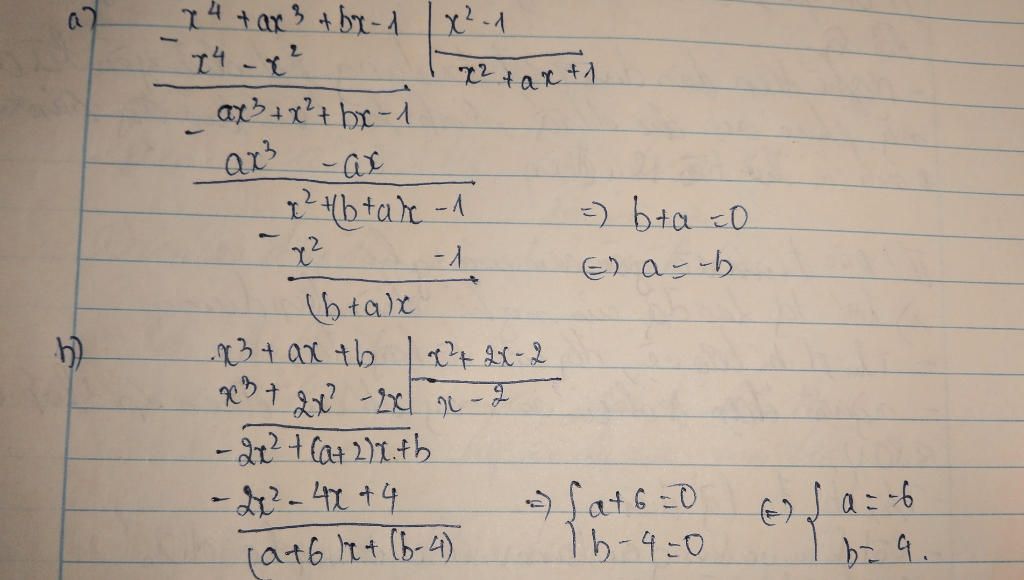 a) x⁴ + ax³ + bx - 1 | x² - 1
- x⁴ - x² | x² + ax + 1
ax³ + x² + bx - 1
- ax³ - ax
x² + (b+a)x - 1 => b+a = 0
- x² - 1 <=> a = -b
(b+a)x
b) x³ + ax + b | x² + 2x - 2
x³ + 2x² - 2x | x - 2
- 2x² + (a+2)x + b
- 2x² - 4x + 4 => { a+6 = 0 <=> { a = -6
(a+6)x + (b-4) b - 4 = 0 b = 4.